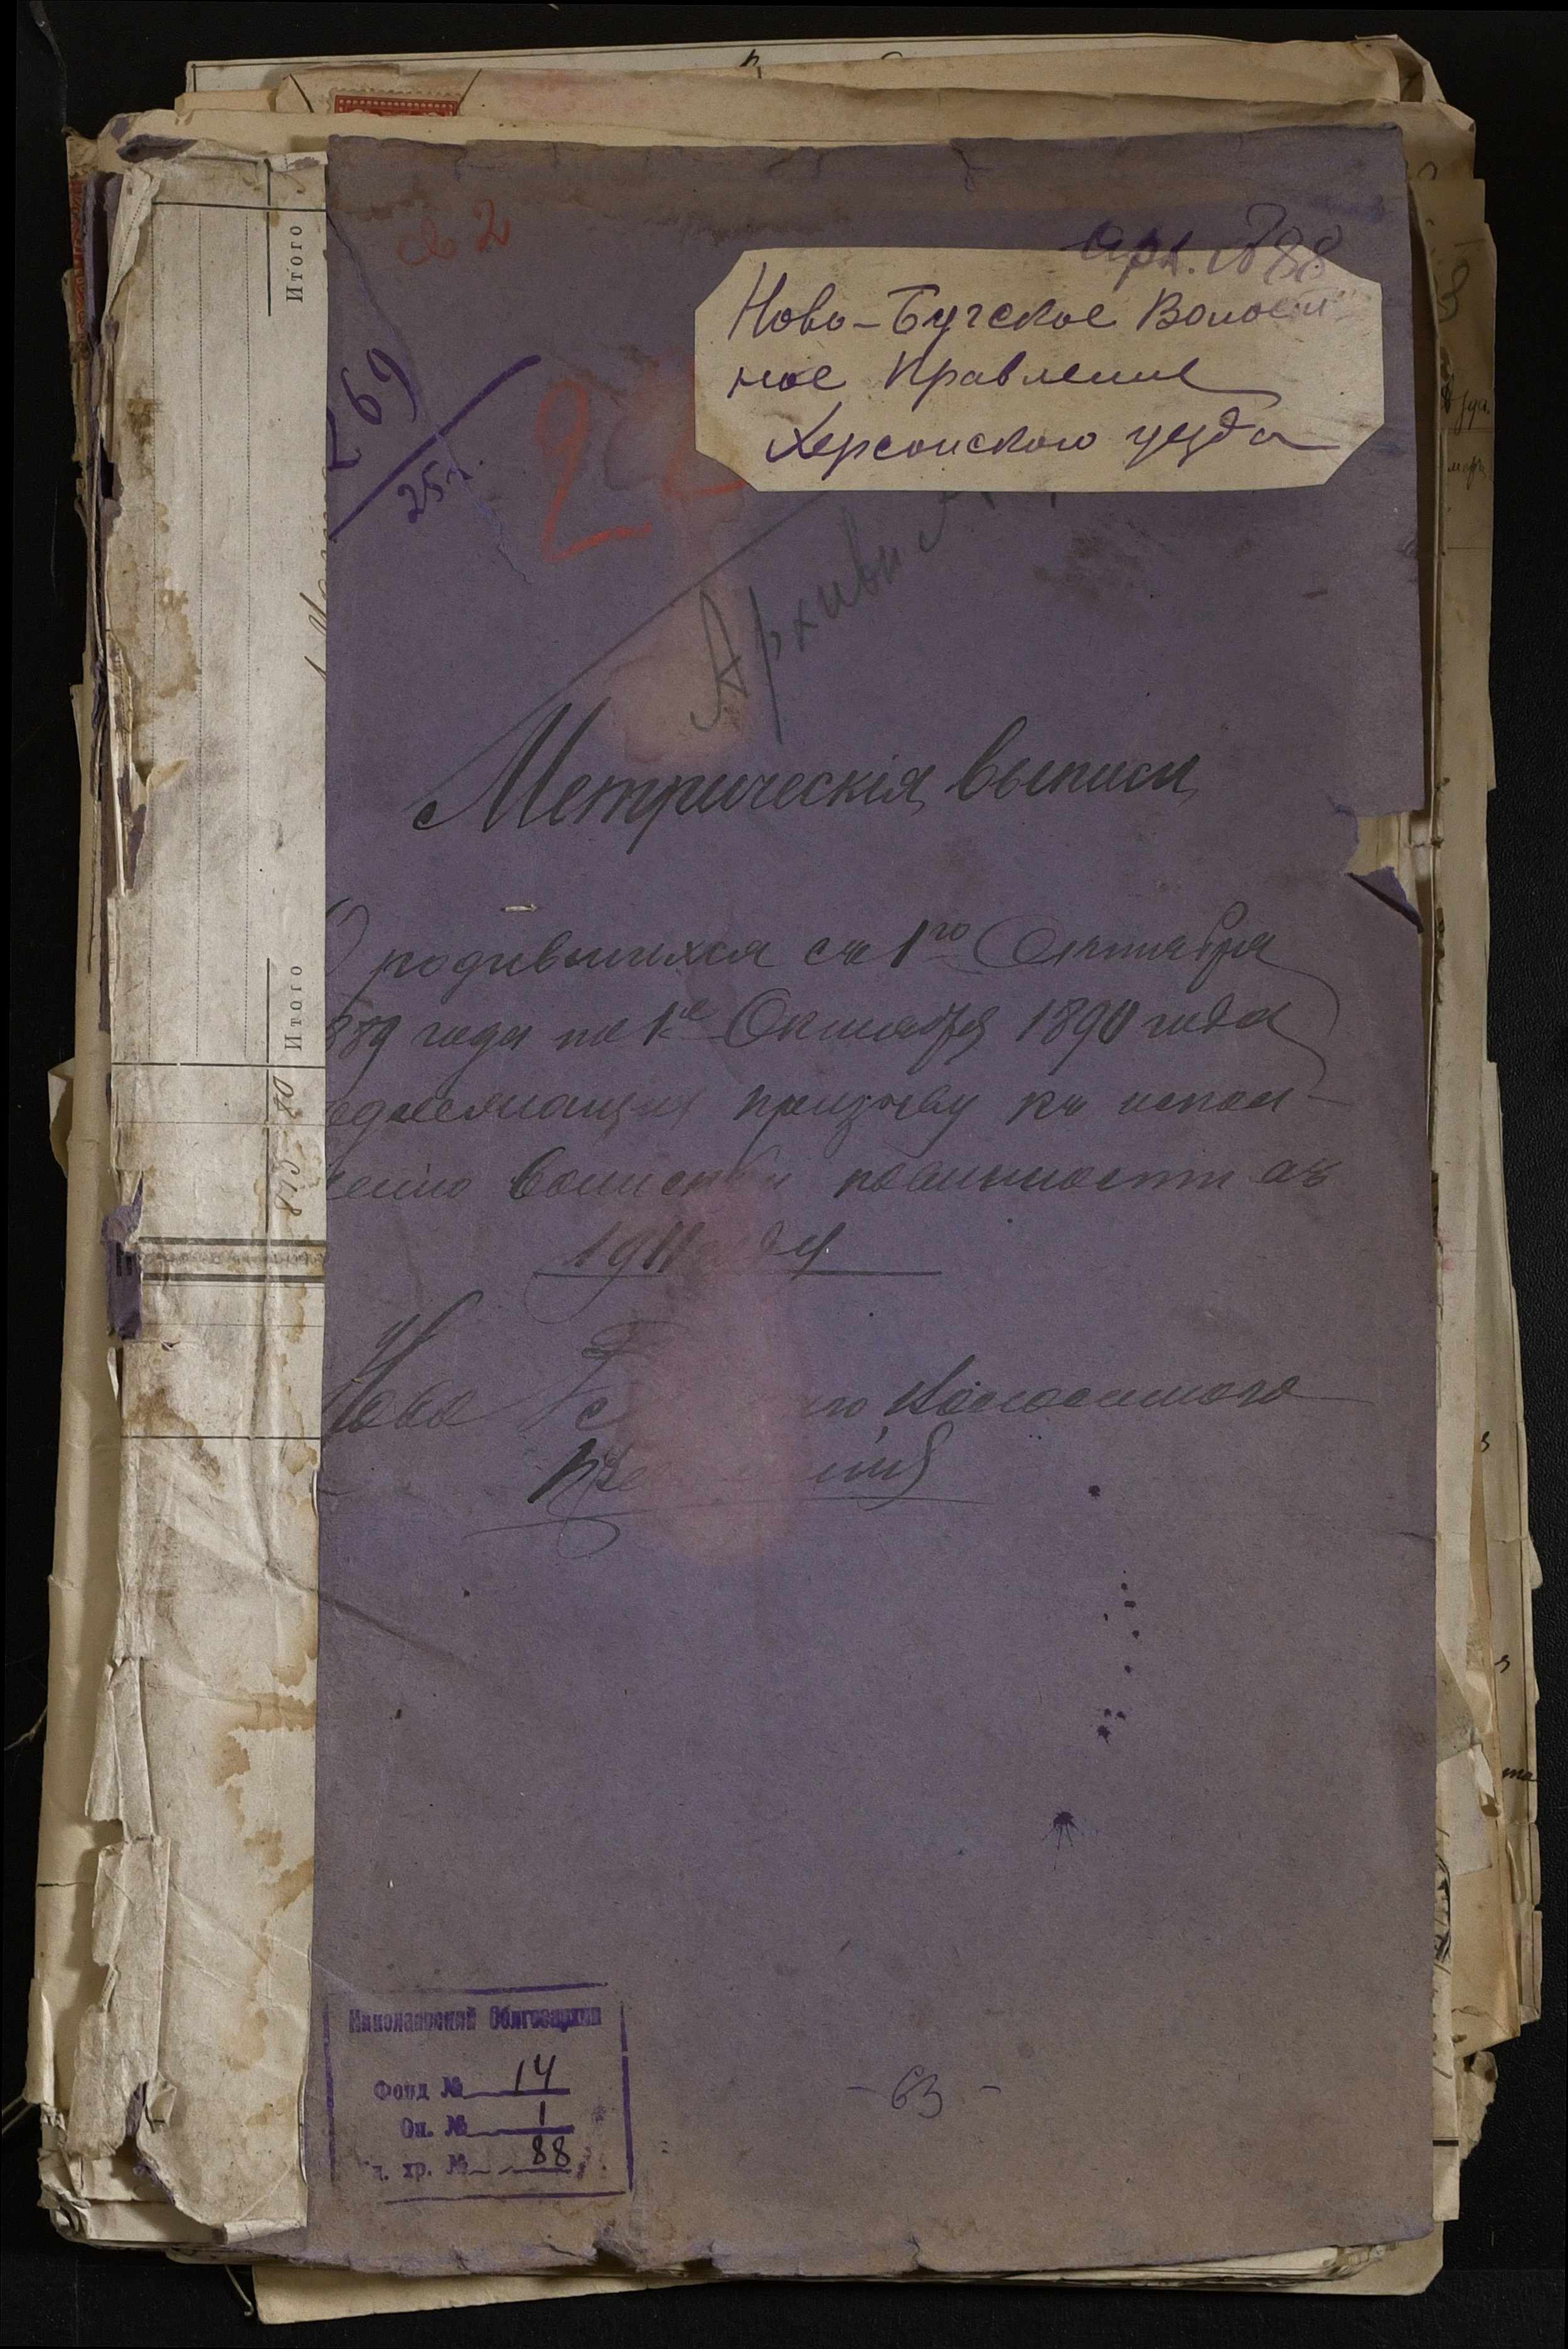 св 2
арх. №88
Ново-Бугское Волост-
ное Правление
Херсонского уезда
269
25
22
Архивн
Метрическія выписи
О родившихся съ 1го Октября
889 года по 1е Октября 1890 года
подлежащих призыву къ испол-
ненію воинской повинности въ
1911 году
Ново волостного
Итого
Итого
Николаевский Облгосархив
Фонд № 14
Оп. № 1
д. хр. № 88
- 63 -